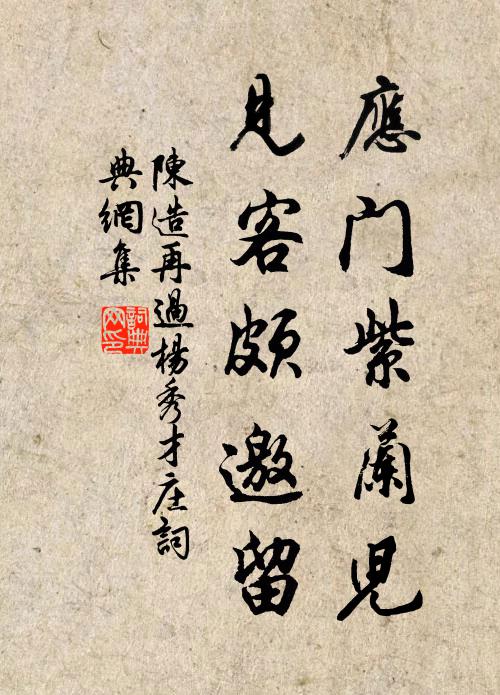 應門紫蘭兒
見客頗邀留
陳造再過楊秀才庄詞
典網集
詞典
网印